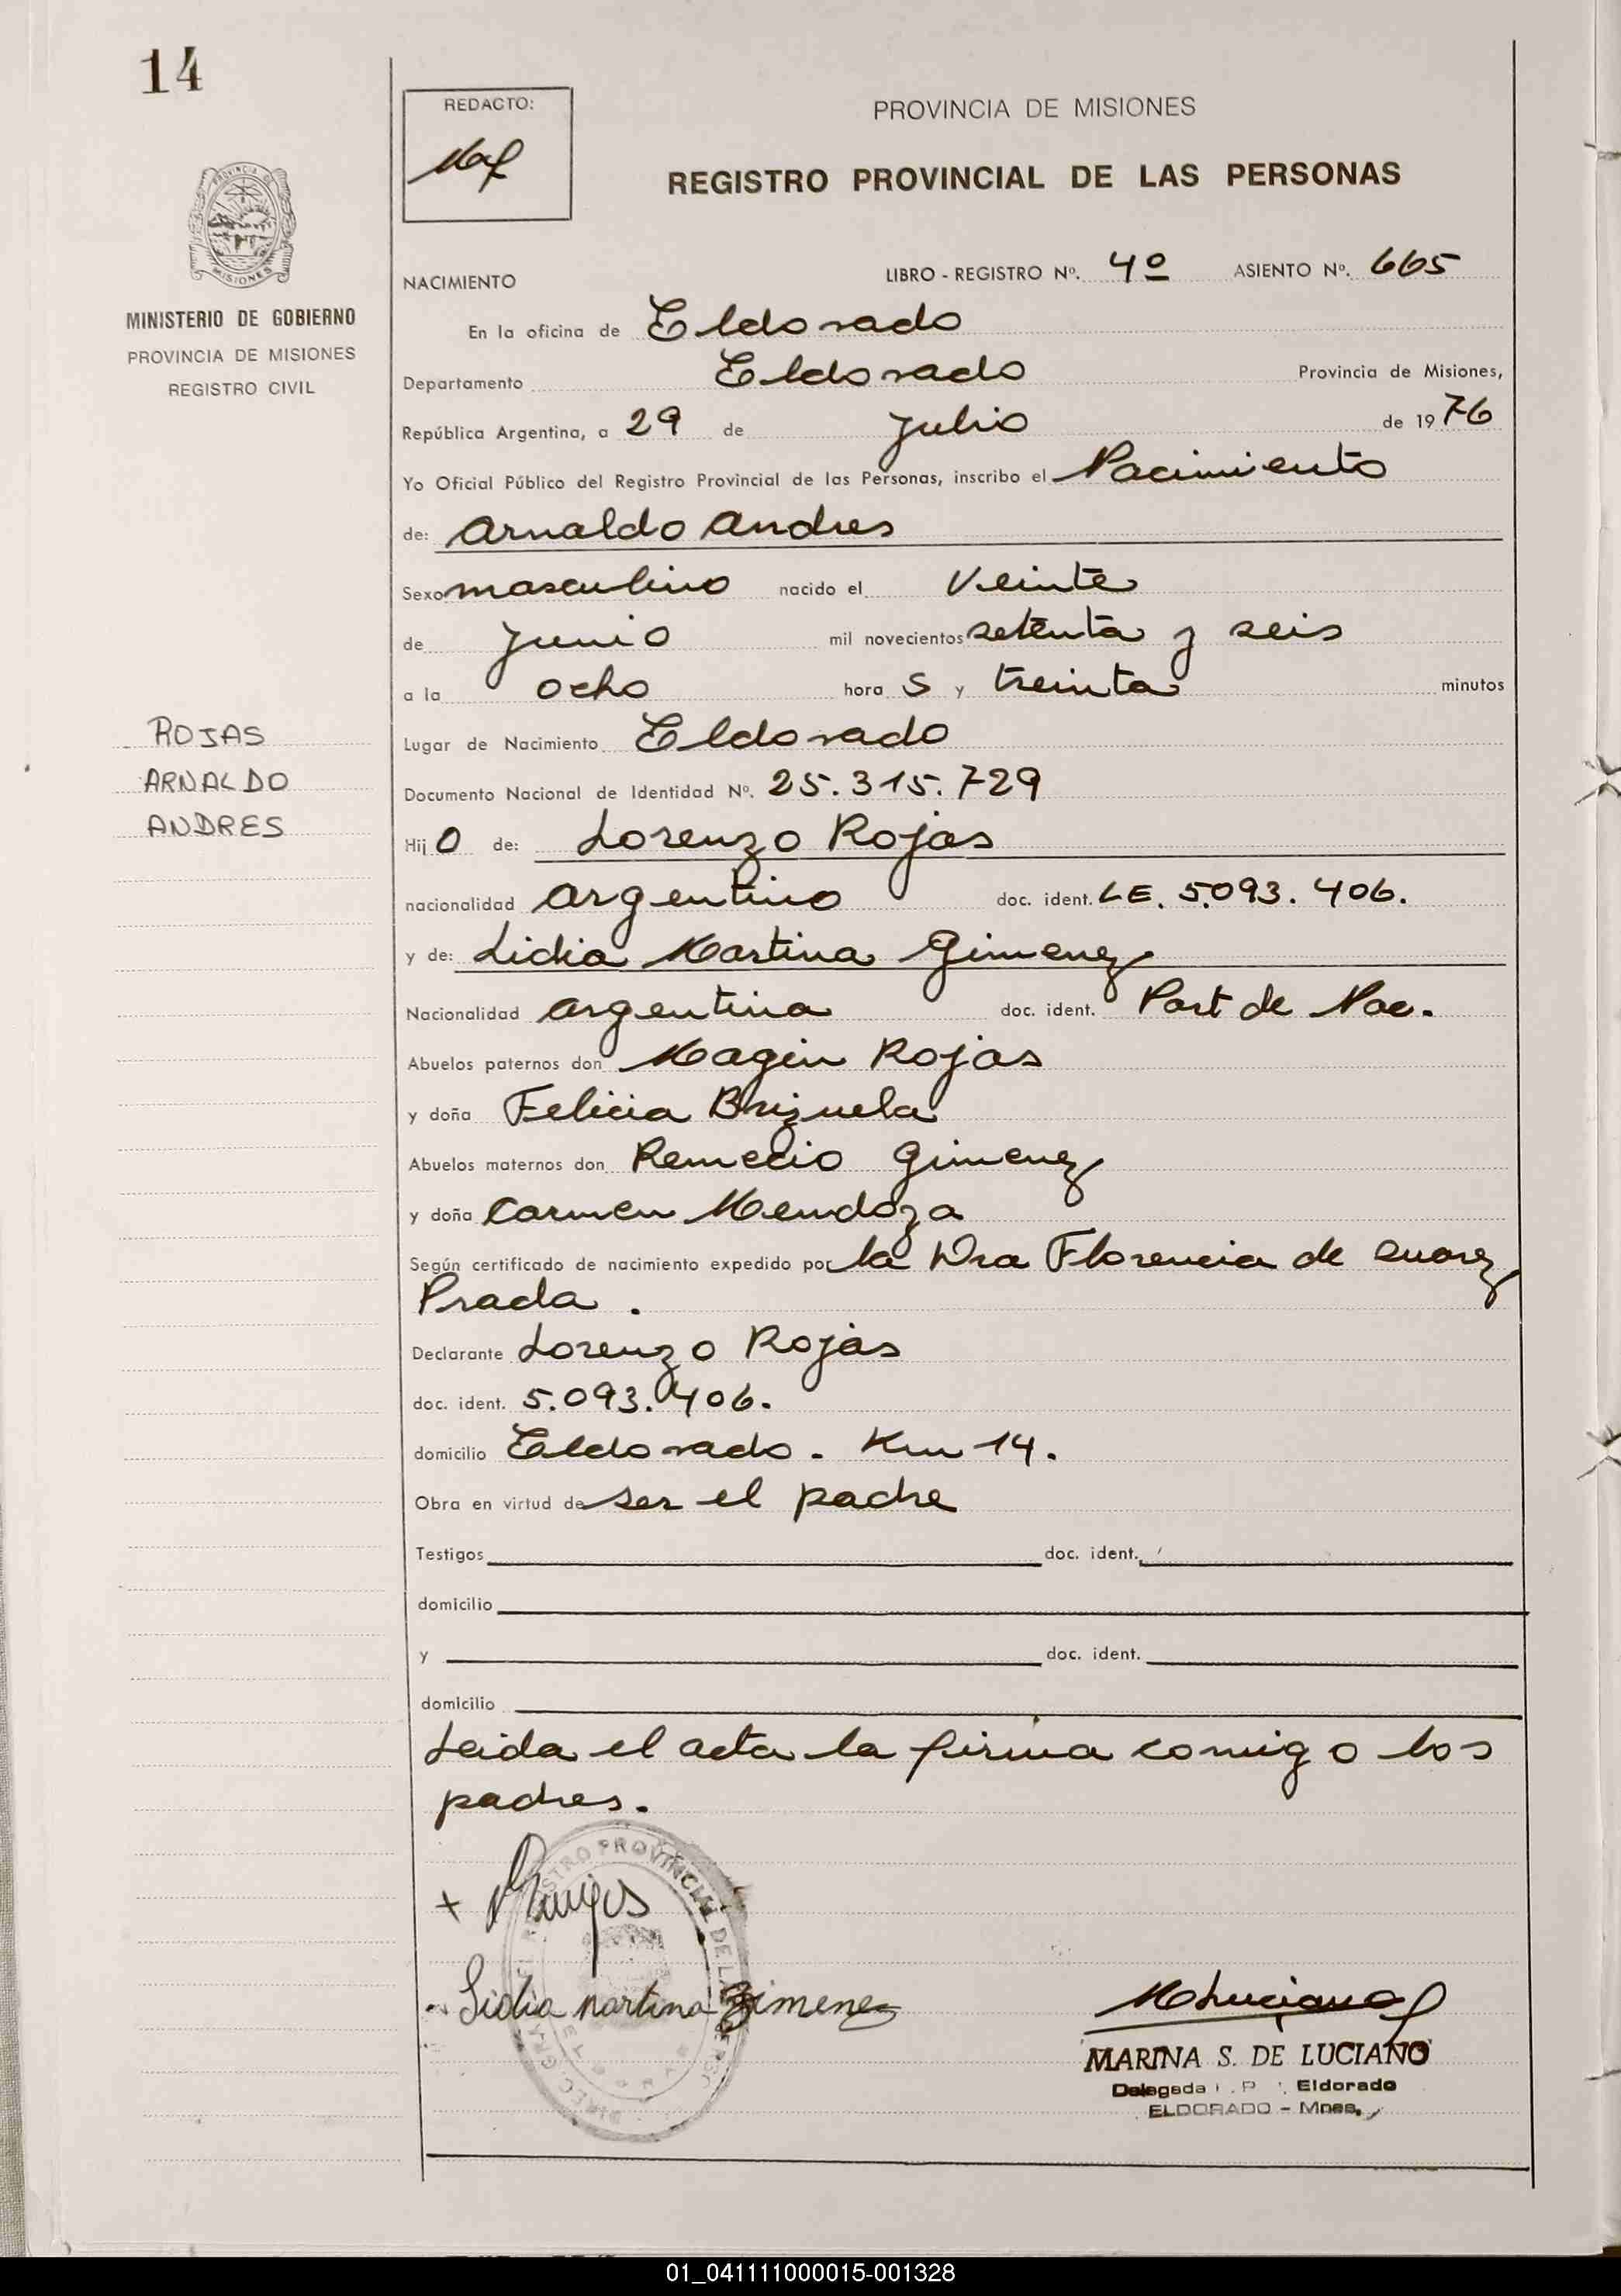 14
REDACTO:
PROVINCIA DE MISIONES
REGISTRO PROVINCIAL DE LAS PERSONAS
MISIONES
MINISTERIO DE GOBIERNO
PROVINCIA DE MISIONES
REGISTRO CIVIL
NACIMIENTO LIBRO - REGISTRO Nº. 4º ASIENTO Nº. 665
En la oficina de Eldorado
Departamento Eldorado Provincia de Misiones,
República Argentina, a 29 de Julio de 19 76
Yo Oficial Público del Registro Provincial de las Personas, inscribo el Nacimiento
de: Arnaldo Andres
Sexo masculino nacido el Veinte
de Junio mil novecientos setenta y seis
a la ocho hora s y treinta minutos
ROJAS
ARNALDO
ANDRES
Lugar de Nacimiento Eldorado
Documento Nacional de Identidad Nº. 25.315.729
Hij o de: Lorenzo Rojas
nacionalidad argentino doc. ident. LE. 5.093.406.
y de: Lidia Martina Gimenez
Nacionalidad argentina doc. ident. Part de Nac.
Abuelos paternos don Magin Rojas
y doña Felicia Brizuela
Abuelos maternos don Remecio Gimenez
y doña Carmen Mendoza
Según certificado de nacimiento expedido por la Dra Florencia de Suarez
Prada.
Declarante Lorenzo Rojas
doc. ident. 5.093.406.
domicilio Eldorado. Km 14.
Obra en virtud de ser el padre
Testigos doc. ident.
domicilio
y doc. ident.
domicilio
Leida el acta la firma comigo los
padres.
Lidia Martina Gimenez
MARINA S. DE LUCIANO
Delegada R. P. Eldorado
ELDORADO - Mnes.
01_041111000015-001328